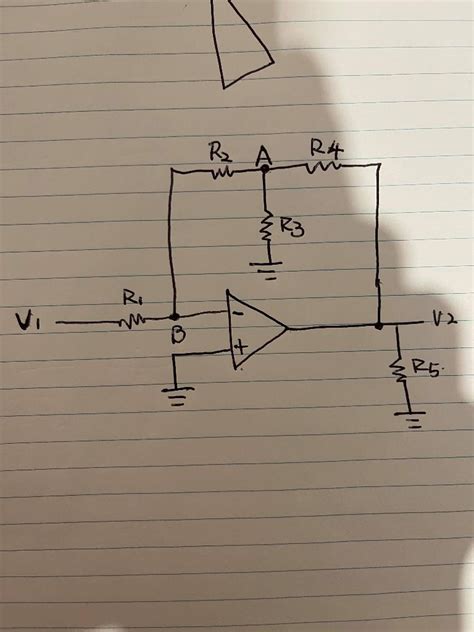 R2 A R4
R3
R1
V1 B - V2
+
R5.